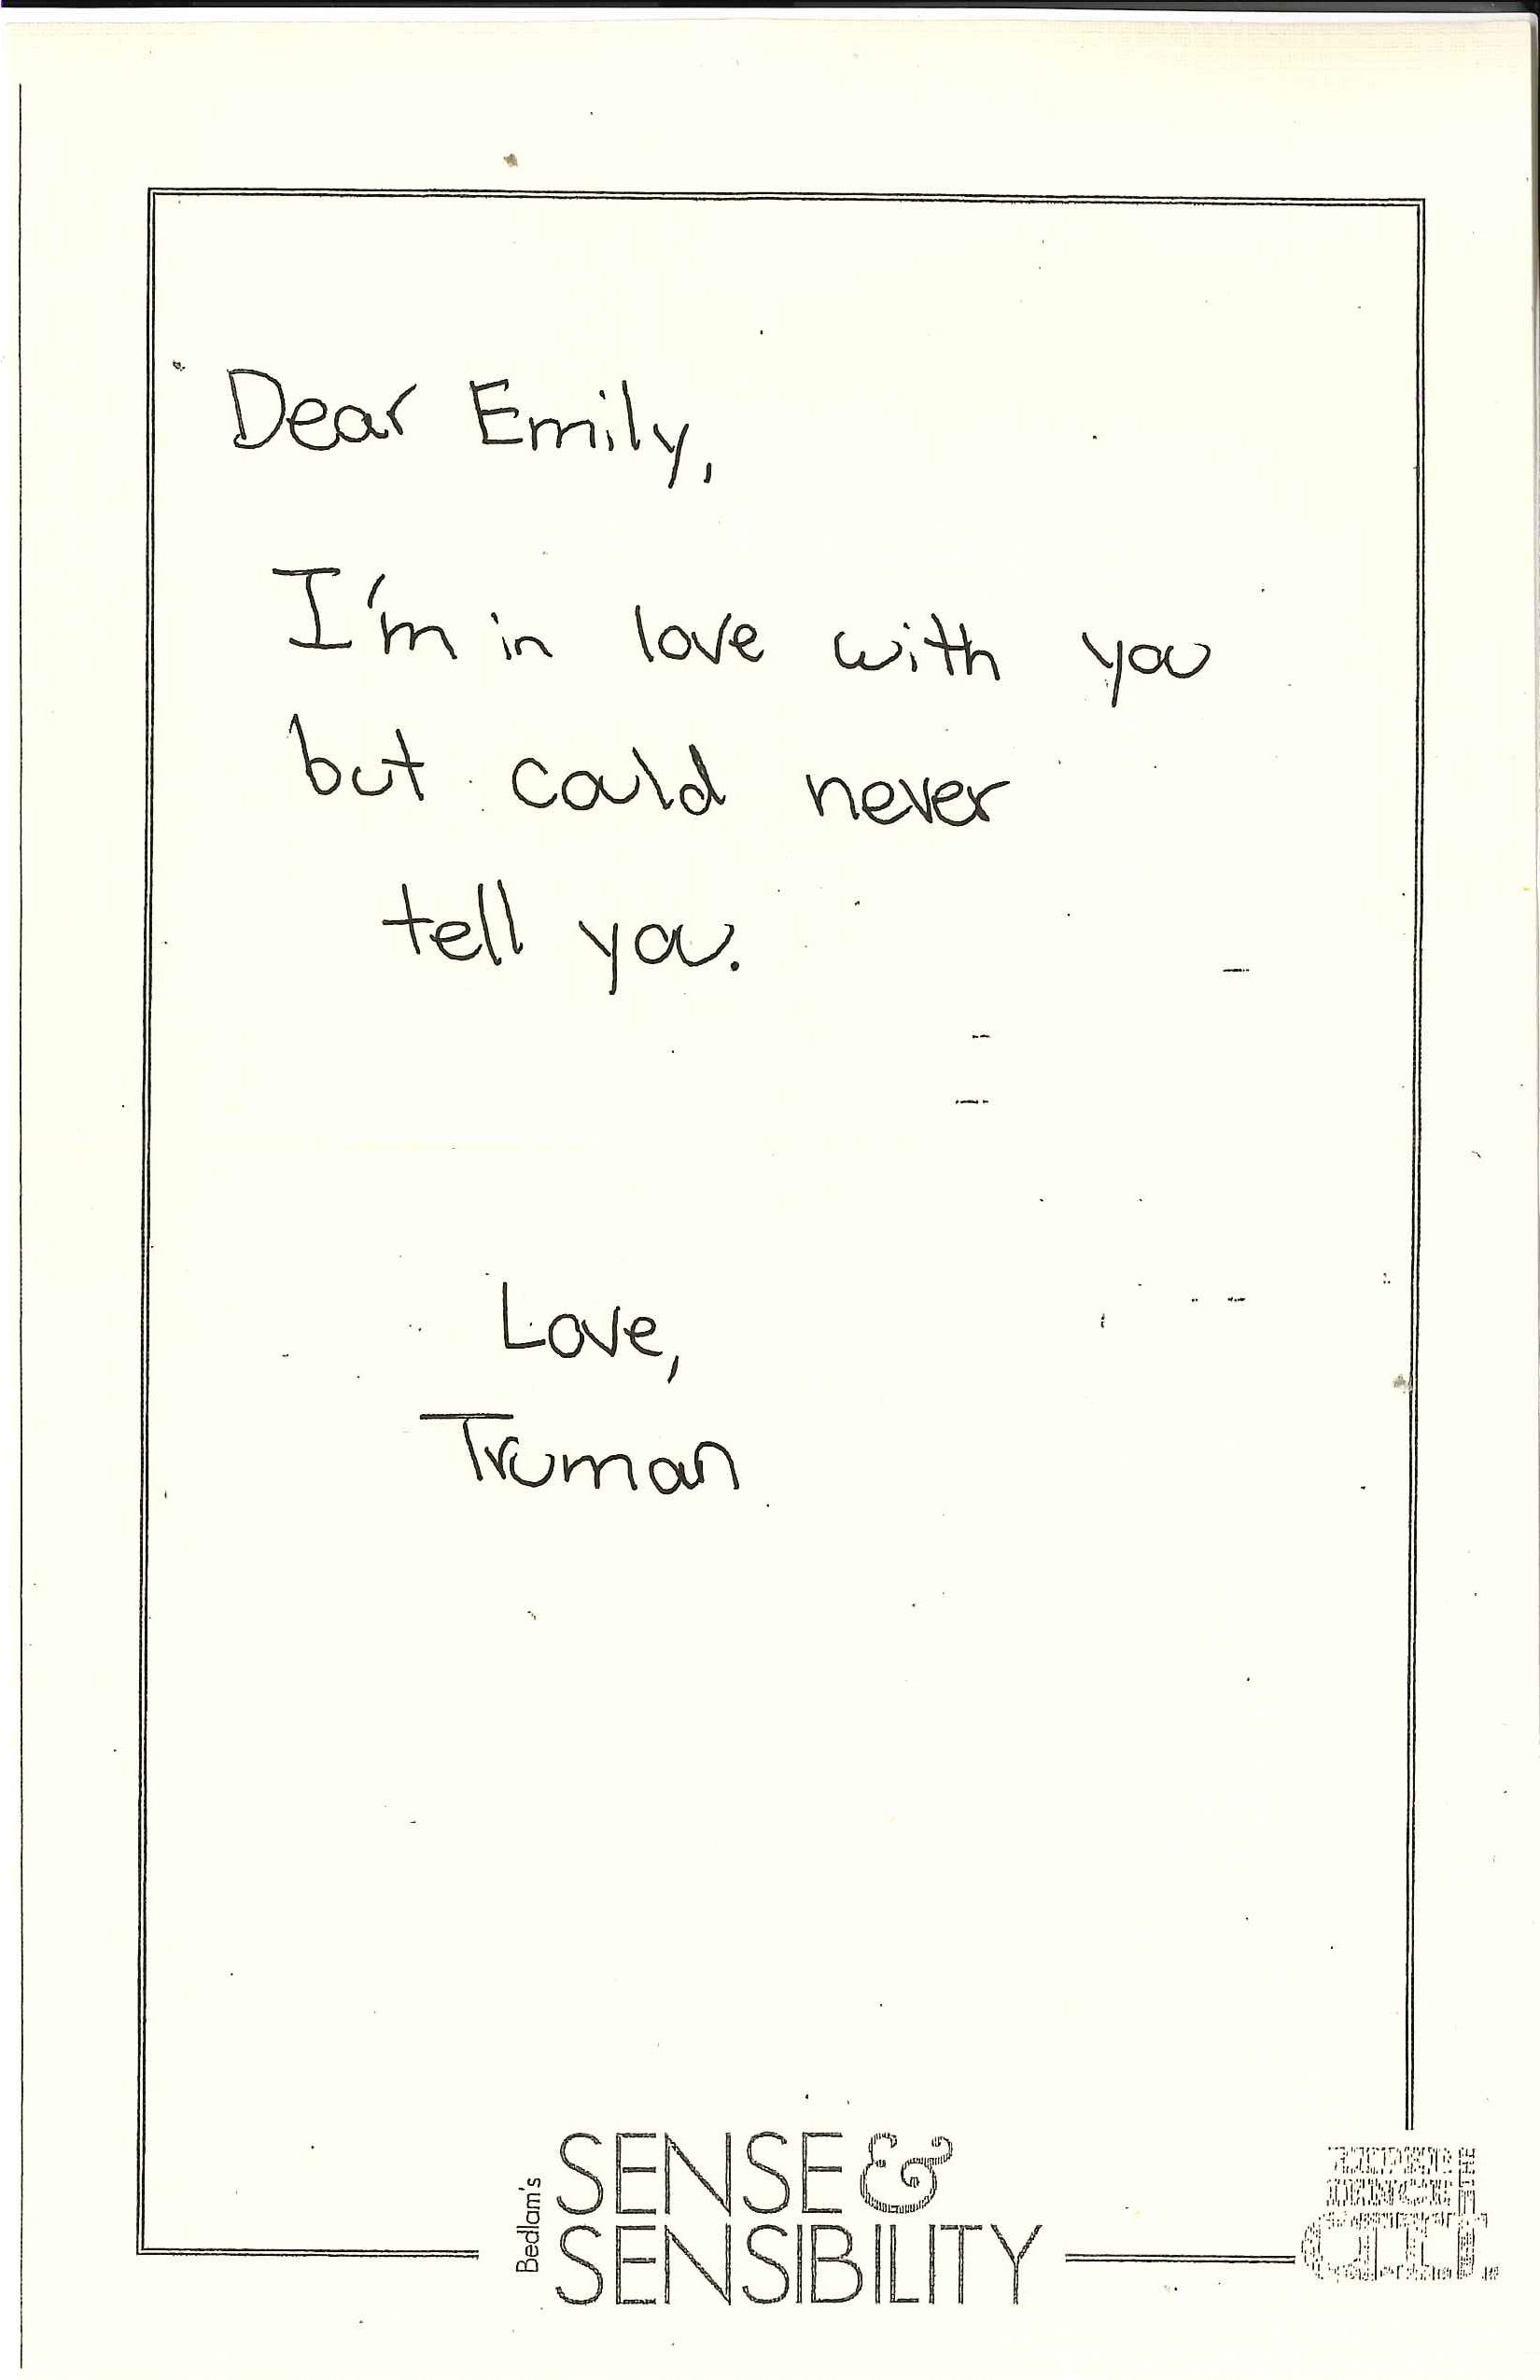 Dear Emily,
I'm in love with you
but could never
tell you.
Love,
Truman
Bedlam's
SENSE &
SENSIBILITY